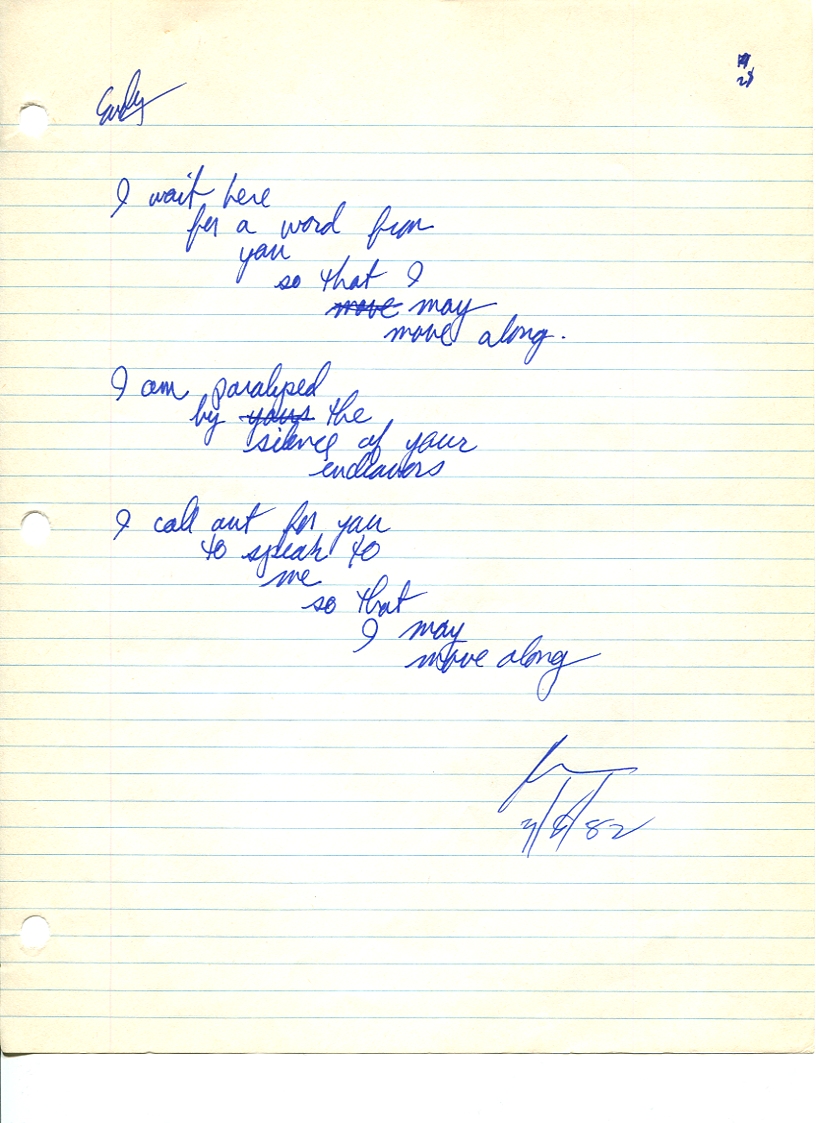 I wait here
for a word from
you
so that I
move may
move along.
I am paralysed
by yours the
silence of your
endeavors
I call out for you
to speak to
me
so that
I may
move along
28